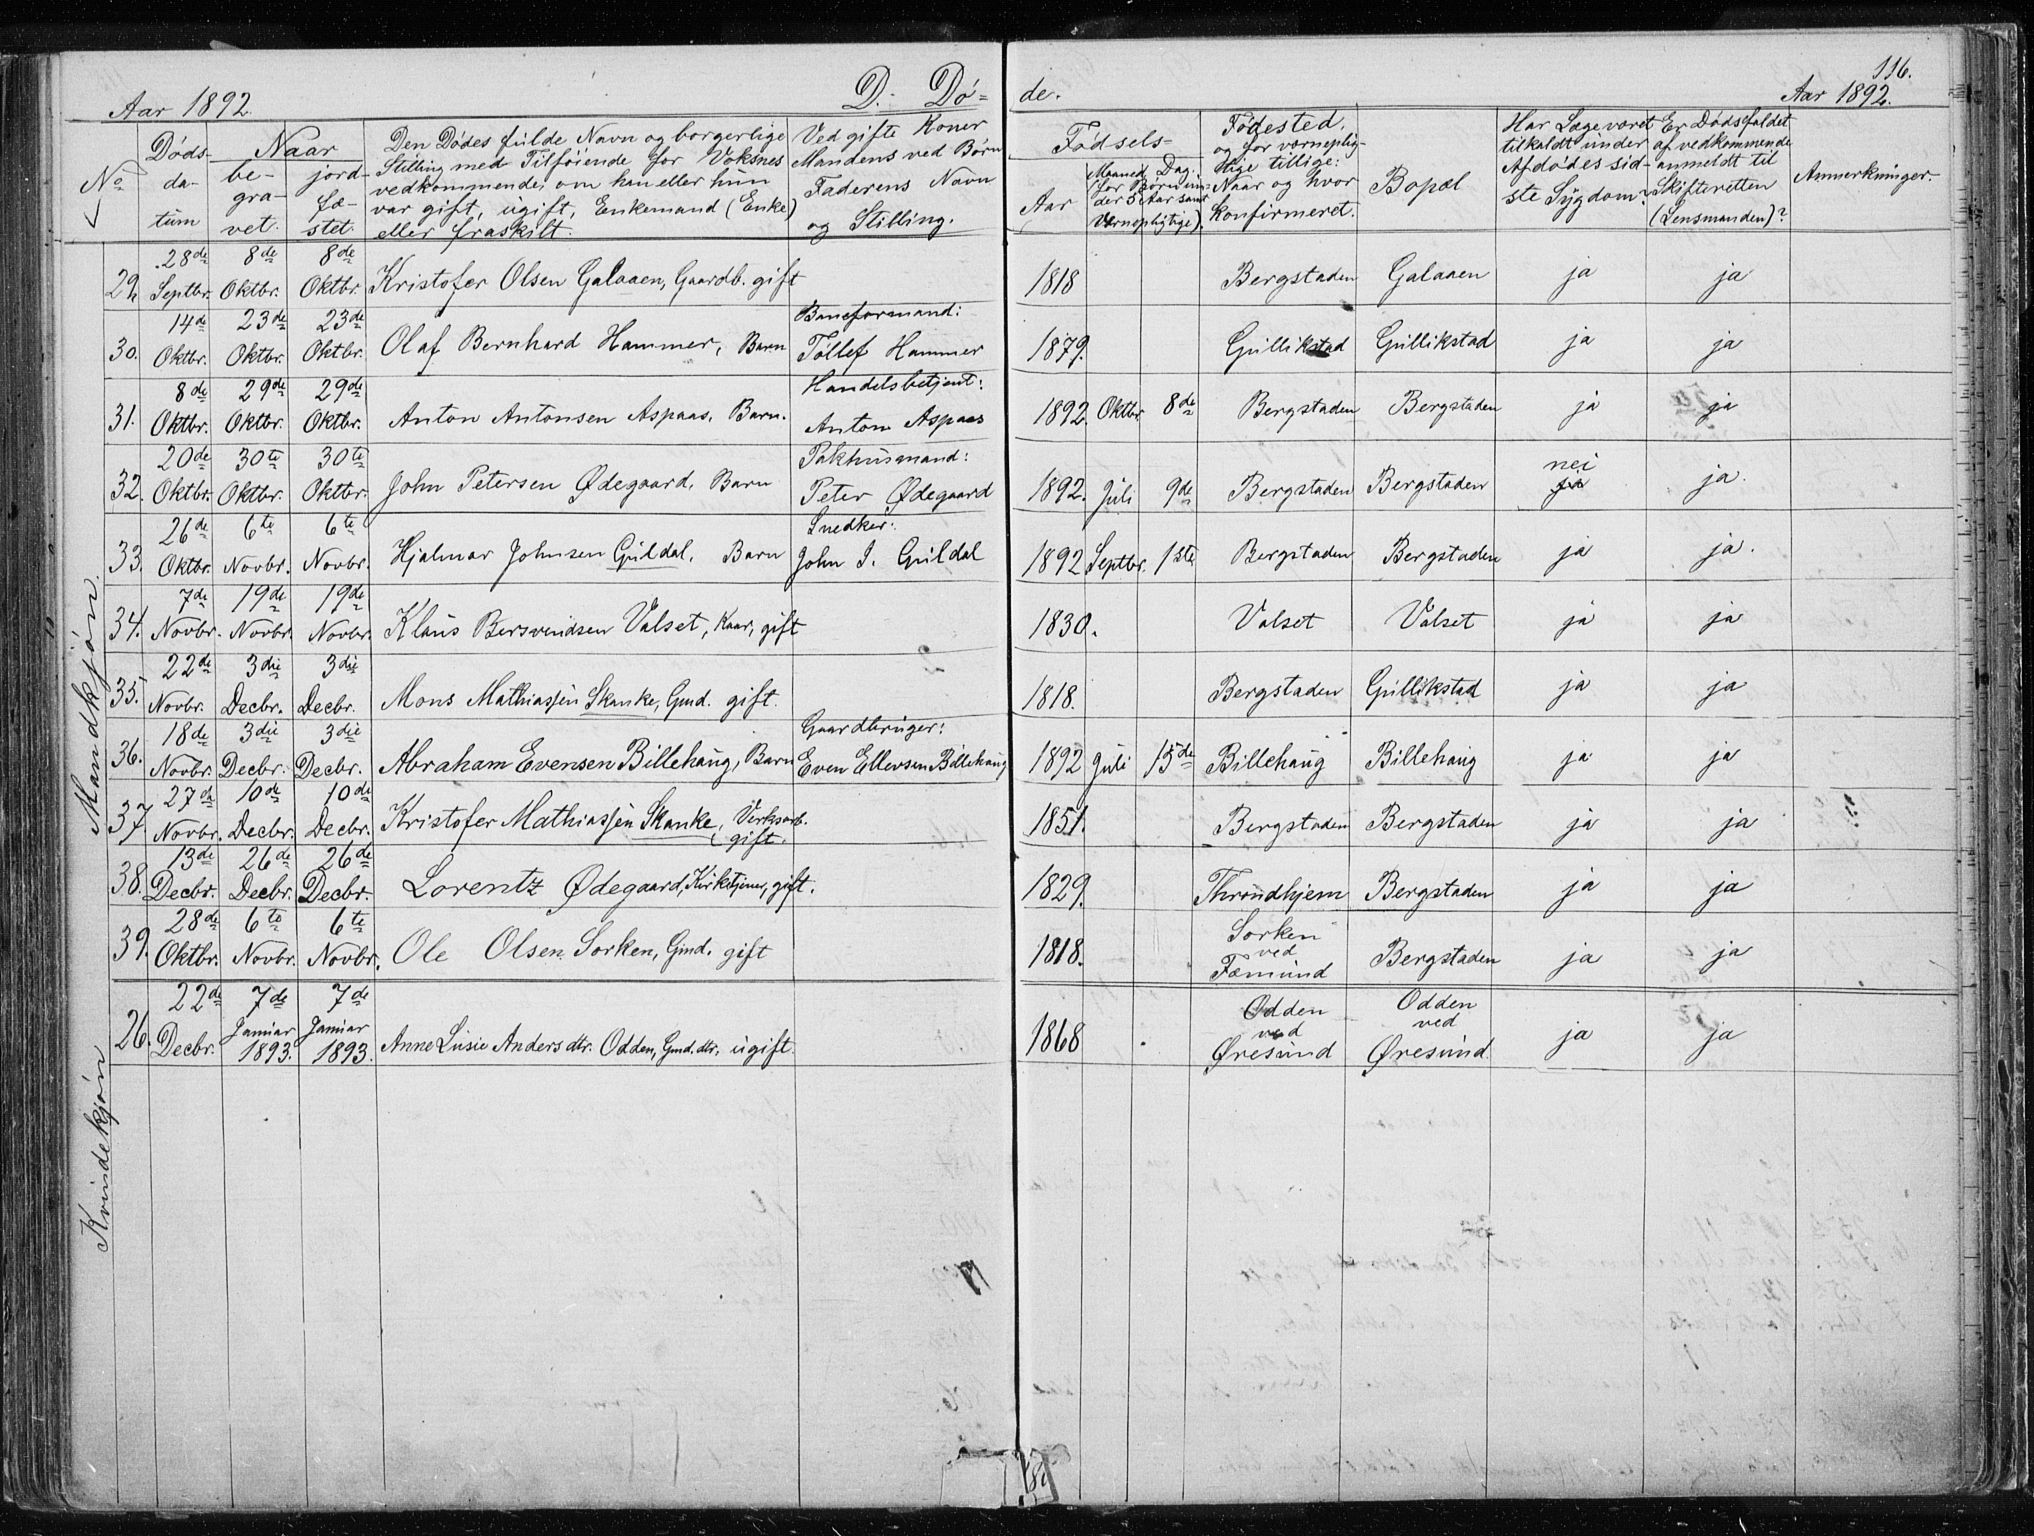 116.
Aar 1892. D. Dö- de. Aar 1892.
No | Döds- da- tum | Naar be- gra- vet. | jord- fæ- stet. | Den Dödes fulde Navn og borgerlige Stilling med Tilföiende for Voksnes vedkommende, om han eller hun var gift, ugift, Enkemand (Enke) eller fraskilt. | Ved gifte Koner Mandens ved Börn Faderens Navn og Stilling. | Födsels- Aar | Maaned Dag. (for Börn under 5 Aar samt Værnepligtige). | Födested, og for værneplig- tige tillige: Naar og hvor konfirmeret. | Bopæl | Har Læge været tilkaldt under Afdödes sid- ste Sygdom? | Er Dödsfaldet af vedkommende anmeldt til Skifteretten (Lensmanden)? | Anmerkninger.
Mandkjön.
29. | 28de Septbr. | 8de Oktbr. | 8de Oktbr. | Kristofer Olsen Galaaen, Gaardb. gift | | 1818 | | | Bergstaden | Galaaen | ja | ja
30. | 14de Oktbr. | 23de Oktbr. | 23de Oktbr. | Olaf Bernhard Hammer, Barn | Baneformand: Tollef Hammer | 1879. | | | Gullikstad | Gullikstad | ja | ja
31. | 8de Oktbr. | 29de Oktbr. | 29de Oktbr. | Anton Antonsen Aspaas, Barn. | Handelsbetjent: Anton Aspaas | 1892. | Oktbr. | 8de | Bergstaden | Bergstaden | ja | ja
32. | 20de Oktbr. | 30te Oktbr. | 30te Oktbr. | John Petersen Ødegaard, Barn | Pakhusmand: Peter Ødegaard | 1892. | Juli | 9de | Bergstaden | Bergstaden | nei ja | ja.
33. | 26de Oktbr. | 6te Novbr. | 6te Novbr. | Hjalmar Johnsen Guldal, Barn | Snedker: John J. Guldal | 1892 | Septbr. | 1ste | Bergstaden | Bergstaden | ja | ja.
34. | 7de Novbr. | 19de Novbr. | 19de Novbr. | Klaus Bersvendsen Valset, Kaar, gift | | 1830. | | | Valset | Valset | ja | ja
35. | 22de Novbr. | 3die Decbr. | 3die Decbr. | Mons Mathiassen Skanke, Gmd. gift. | | 1818. | | | Bergstaden | Gullikstad | ja | ja
36. | 18de Novbr. | 3die Decbr. | 3die Decbr. | Abraham Evensen Billehaug, Barn | Gaardbruger: Even Ellevsen Billehaug | 1892 | Juli | 15de | Billehaug | Billehaug | ja | ja
37. | 27de Novbr. | 10de Decbr. | 10de Decbr. | Kristofer Mathiassen Skanke, Verksarb. gift. | | 1851. | | | Bergstaden | Bergstaden | ja | ja
38. | 13de Decbr. | 26de Decbr. | 26de Decbr. | Lorentz Ødegaard, Kirketjener, gift. | | 1829. | | | Throndhjem | Bergstaden | ja | ja
39. | 28de Oktbr. | 6te Novbr. | 6te Novbr. | Ole Olsen Sorken, Gmd. gift | | 1818. | | | Sorken ved Fæmund | Bergstaden | ja | ja
Kvindekjön
26. | 22de Decbr. | 7de Januar 1893. | 7de Januar 1893. | Anne Lusie Andersdtr. Odden, Gmd. dtr. ugift. | | 1868 | | | Odden ved Øresund | Odden ved Øresund. | ja | ja